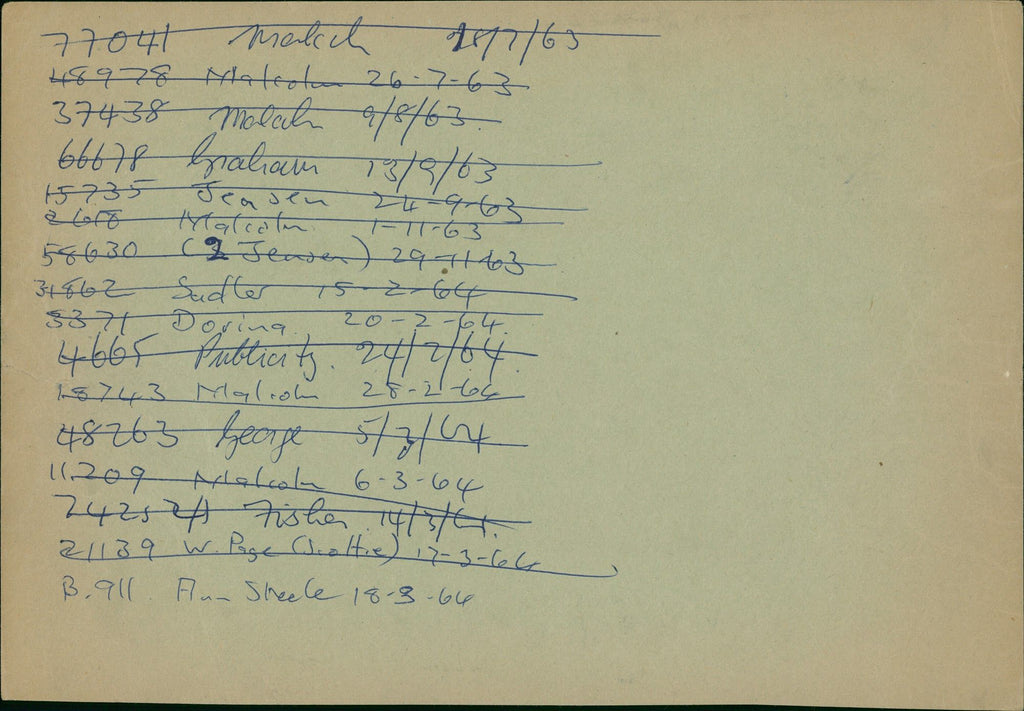 77041 Malcolm 18/7/63
48978 Malcolm 26-7-63
37438 Malcolm 9/8/63
66678 Graham 13/9/63
15735 Jensen 24-9-63
2618 Malcolm 1-11-63
58630 (2 Jensen) 29-11-63
31862 Sadler 15-2-64
5371 Dorina 20-2-64
4665 Publicity. 24/2/64
18743 Malcolm 28-2-64
48263 George 5/3/64
11209 Malcolm 6-3-64
Fisher 14/3/64.
21139 W. Page (Scottie) 17-3-64
B.911. Ann Steele 18-3-64